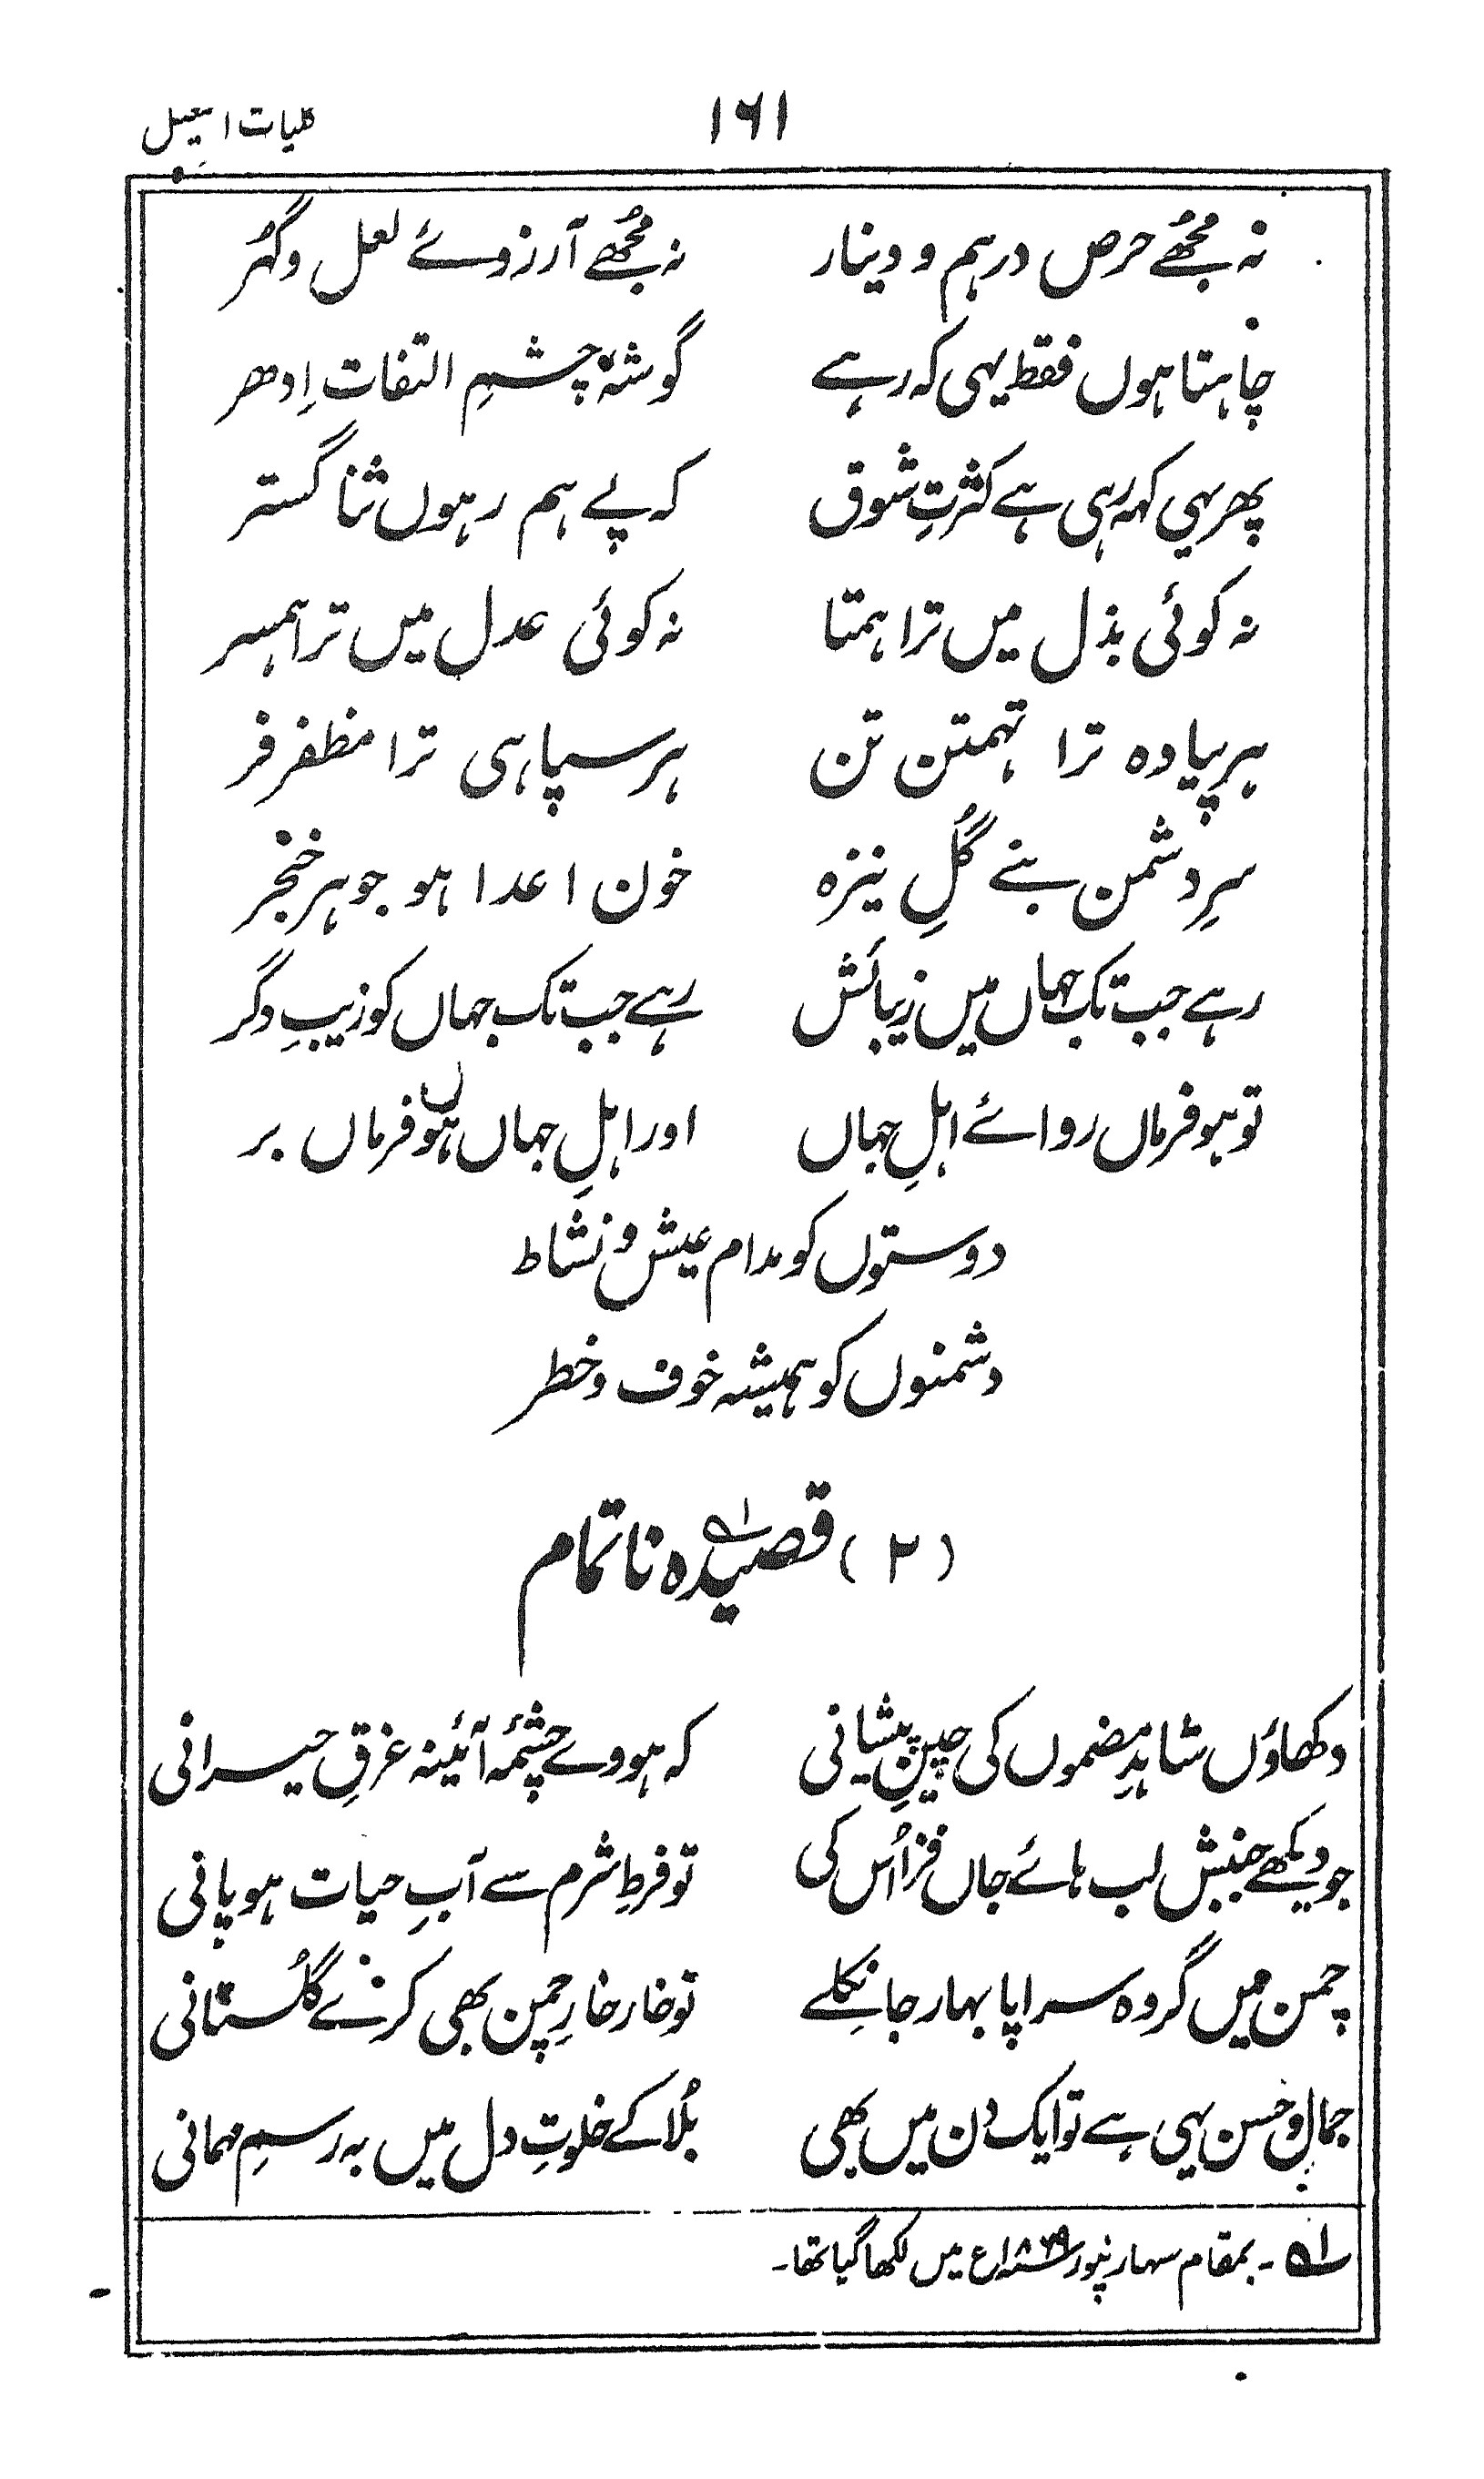 کلیات اسمٰعیل ۱۶۱
نہ مجھے حرص درہم و دینار نہ مجھے آرزوئے لعل و گہر
چاہتا ہوں فقط یہی کہ رہے گوشۂ چشمِ التفات اِدھر
پھر یہی کہہ رہی ہے کثرتِ شوق کہ پے ہم رہوں ثنا گستر
نہ کوئی بذل میں ترا ہمتا نہ کوئی عدل میں ترا ہمسر
ہر پیادہ ترا تہمتن تن ہر سپاہی ترا مظفر فر
سرِ دشمن بنے گُلِ نیزہ خون اعدا ہو جوہر خنجر
رہے جب تک جہاں میں زیبائش رہے جب تک جہاں کو زیبِ دگر
تو ہو فرماں روائے اہلِ جہاں اور اہلِ جہاں ہوں فرماں بر
دوستوں کو مدام عیش و نشاط
دشمنوں کو ہمیشہ خوف و خطر
(۲) قصیدہ ناتمام ؎۱
دکھاؤں شاہدِ مضموں کی چینِ پیشانی کہ ہووے چشمۂ آئینہ غرقِ حیرانی
جو دیکھے جنبش لب ہائے جاں فزا اُس کی تو فرطِ شرم سے آبِ حیات ہو پانی
چمن میں گر وہ سراپا بہار جا نکلے تو خار خارِ چمن بھی کرے گلُستانی
جمال و حسن یہی ہے تو ایک دن میں بھی بُلا کے خلوتِ دل میں بہ رسمِ مہمانی
؎۱ ۔ بمقام سہارنپور ۱۸۷۹ء میں لکھا گیا تھا۔